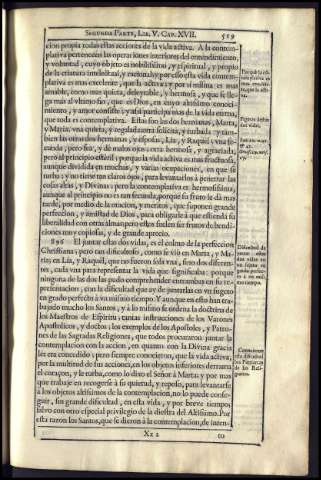 SEGUNDA PARTE, LIB. V. CAP. XVII. 519
cion propia todas estas acciones de la vida activa. A la contem-
plativa pertenecen las operaciones interiores del entendimiento,
y voluntad, cuyo objeto es nobilissimo, y espiritual, y propio
de la criatura intelectual, y racional; y por esso esta vida contem-
plativa es mas excelente, que la activa; y por si misma es mas
amable, como mas quieta, deleytable, y hermosa, y que se lle-
ga mas al vltimo fin, que es Dios, en cuyo altissimo conoci-
miento, y amor consiste; y assi participa mas de la vida eterna,
que toda es contemplativa. Estas son las dos hermanas, Marta,
y Maria: vna quieta, y regalada; otra solicita, y turbada: y tam-
bien las otras dos hermanas, y esposas, Lia, y Raquel; vna fe-
cunda; pero fea, y de malos ojos; otra hermosa, y agraciada,
pero al principio esteril: porque la vida activa es mas fructuosa,
aunque dividida en muchas, y varias ocupaciones, en que se
turba; y no tiene tan claros ojos, para levantarlos à penetrar las
cosas altas, y Divinas; pero la contemplativa es hermosissima,
aunque al principio no es tan fecunda, porque su fruto le dà mas
tarde, por medio de la oracion, y meritos, que suponen grande
perfeccion, y amistad de Dios, para obligarle à que estienda su
liberalidad con otras almas; pero estos suelen ser frutos de bendi-
ciones muy copiosas, y de grande aprecio.
896 El juntar estas dos vidas, es el colmo de la perfeccion
Christiana; pero tan dificultoso, como se viò en Marta, y Ma-
ria; en Lia, y Raquel, que no fueron sola vna, sino dos diferen-
tes, cada vna para representar la vida que significaba: porque
ninguna de las dos las pudo comprehender entrambas en su re-
presentacion; tras la dificultad que ay de juntarlas en vn sugeto
en grado perfecto à vn mismo tiempo. Y aunque en esto han tra-
bajado mucho los Santos, y à lo mismo se ordena la doctrina de
los Maestros de Espiritu; tantas instrucciones de los Varones
Apostolicos, y doctos; los exemplos de los Apostoles, y Patro-
nes de las Sagradas Religiones, que todos procuraron juntar la
contemplacion con la accion, en quanto con la Divina gracia
les era concedido; pero siempre conocieron, que la vida activa,
por la multitud de sus acciones, en los objetos inferiores derrama
el coraçon, y le turba, como lo dixo el Señor à Marta: y por mas
que trabaje en recogerse à su quietud, y reposo, para levantarse
à los objetos altissimos de la contemplacion, no lo puede conse-
guir, sin grande dificultad, en esta vida, y por breve tiempo,
salvo con otro especial privilegio de la diestra del Altissimo. Por
esta razon los Santos, que se dieron à la contemplacion, de inten-
Xx 2
to